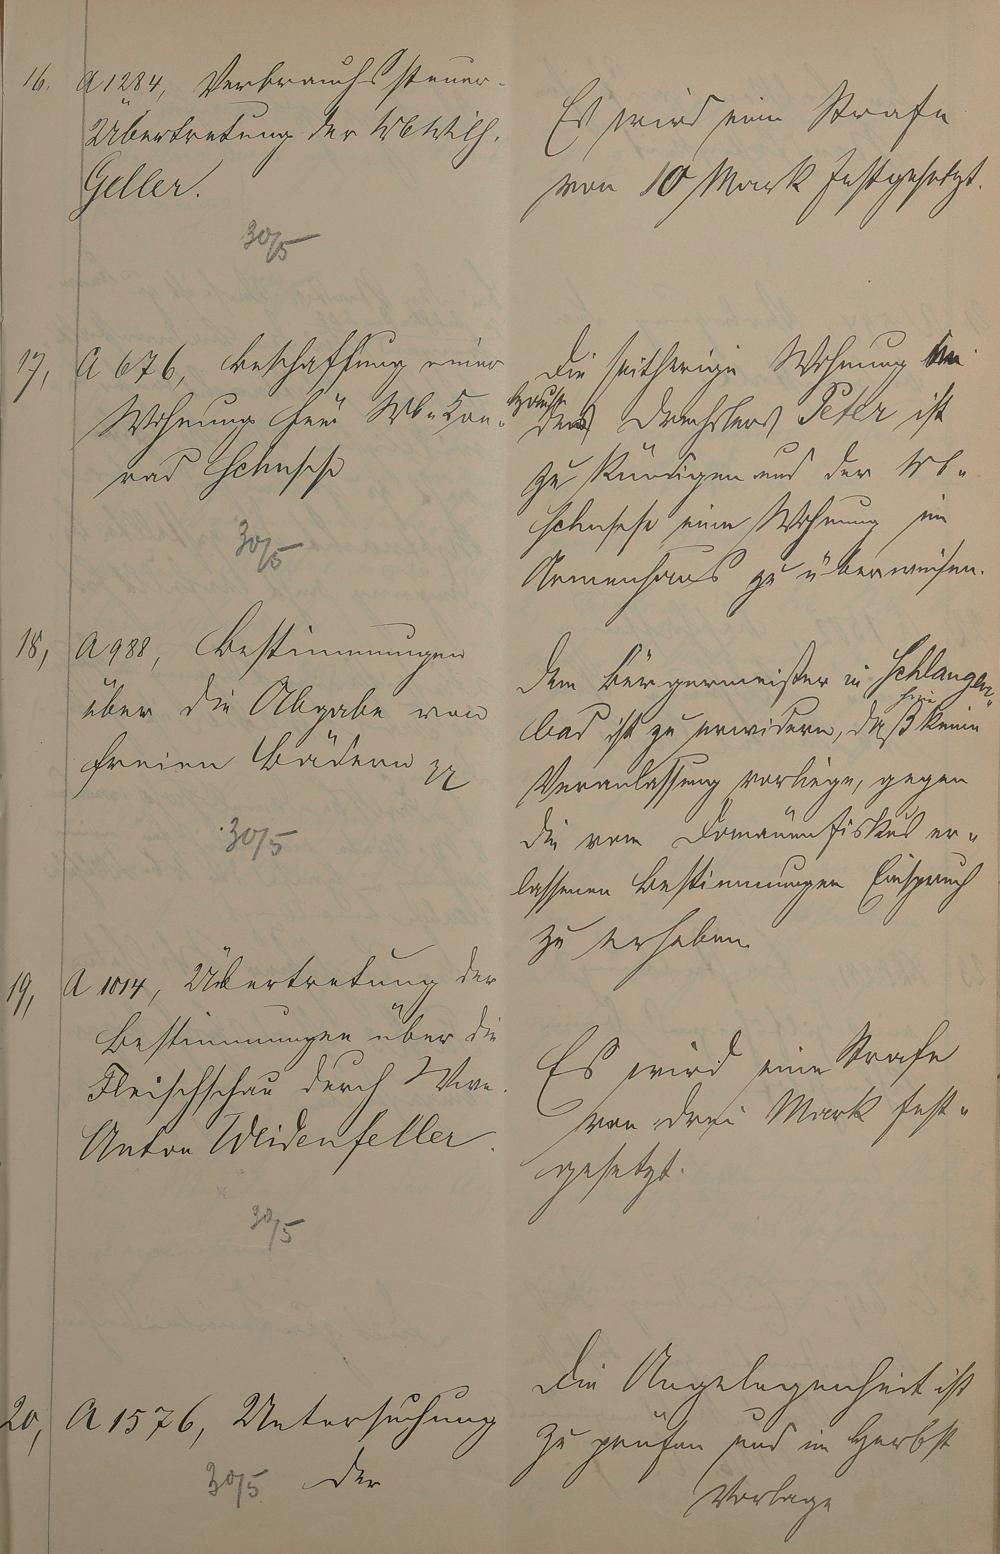 16. A 1284, Verbrauchssteuer-
Übertretung der Wb Wilh.
Geller.
30/5
Es wird eine Strafe
von 10 Mark festgesetzt.
17, A 676, Beschaffung einer
Wohnung für Wb. Con-
rad Schnese
30/5
Die seitherige Wohnung im
Hause
des Drechslers Peter ist
zu kündigen und der Wb.
Schnese eine Wohnung im
Armenhaus zu überweisen.
18, A 988, Bestimmungen
über die Abgabe von
freien Bädern
30/5
Dem Bürgermeister in Schlangen-
bad ist zu erwidern, daß hier keine
Veranlassung vorliege, gegen
die vom Domänenfiskus er-
lassenen Bestimmungen Einspruch
zu erheben.
19, A 1014, Übertretung der
Bestimmungen über die
Fleischschau durch Wwe.
Anton Weidenfeller.
30/5
Es wird eine Strafe
von drei Mark fest-
gesetzt.
20, A 1576, Untersuchung
30/5 der
Die Angelegenheit ist
zu prüfen und im Herbst
Vorlage